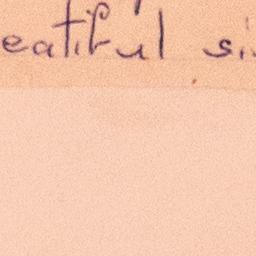 eatiful si